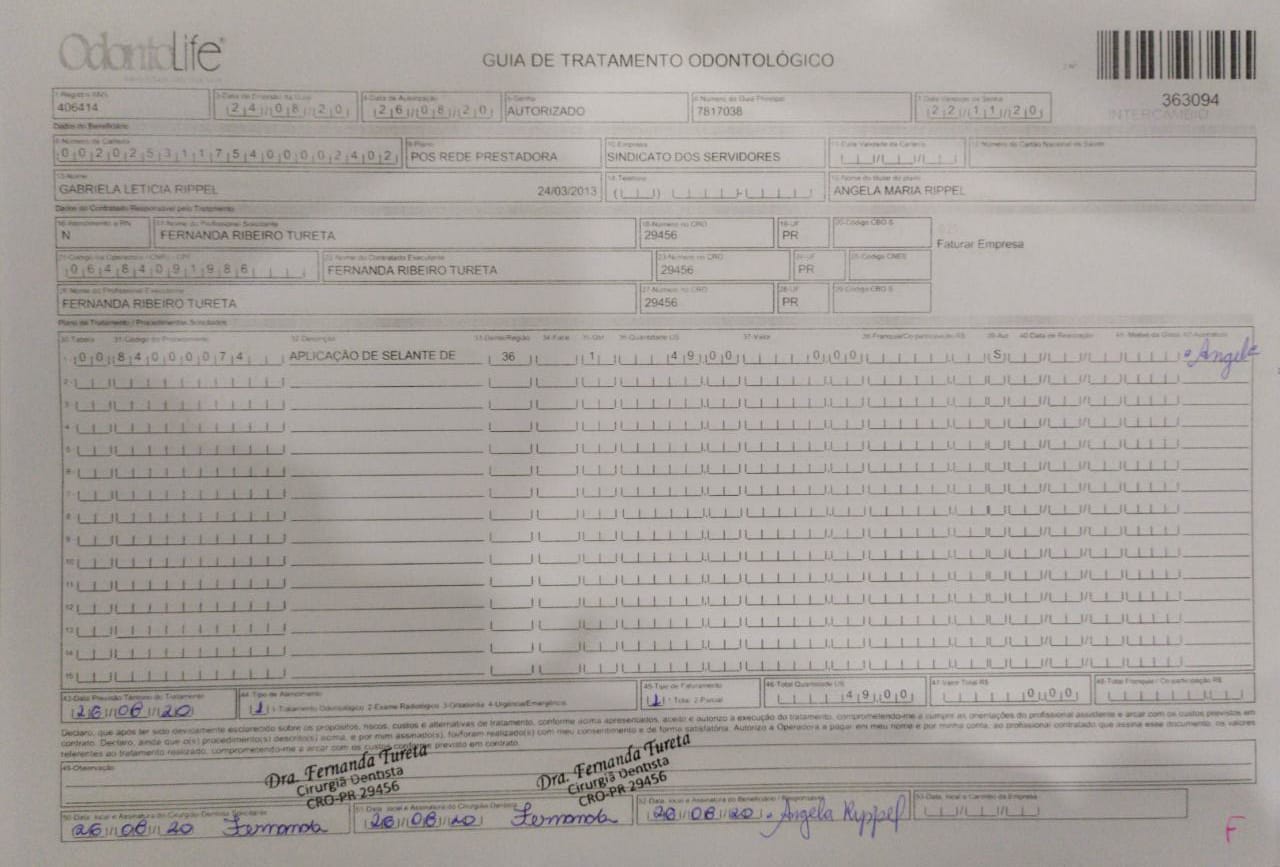 OdontoLife
GUIA DE TRATAMENTO ODONTOLÓGICO
363094
INTERCAMBIO
1-Registro ANS
406414
3-Data de Emissão da Guia
24/08/20
4-Data de Autorização
26/08/20
5-Senha
AUTORIZADO
6-Número da Guia Principal
7817038
7-Data Validade da Senha
22/11/20
Dados do Beneficiário
8-Número da Carteira
00202531175400002402
9-Plano
POS REDE PRESTADORA
10-Empresa
SINDICATO DOS SERVIDORES
11-Data Validade da Carteira
12-Número do Cartão Nacional de Saúde
13-Nome
GABRIELA LETICIA RIPPEL 24/03/2013
14-Telefone
15-Nome do titular do plano
ANGELA MARIA RIPPEL
Dados do Contratado Responsável pelo Tratamento
16-Atendimento a RN
N
17-Nome do Profissional Solicitante
FERNANDA RIBEIRO TURETA
18-Número no CRO
29456
19-UF
PR
20-Código CBO S
Faturar Empresa
21-Código na Operadora / CNPJ - CPF
06484091986
22-Nome do Contratado Executante
FERNANDA RIBEIRO TURETA
23-Número no CRO
29456
24-UF
PR
25-Código CNES
26-Nome do Profissional Executante
FERNANDA RIBEIRO TURETA
27-Número no CRO
29456
28-UF
PR
29-Código CBO S
Plano de Tratamento / Procedimentos Solicitados
30-Tabela 31-Código do Procedimento 32-Descrição 33-Dente/Região 34-Face 35-Qtd 36-Quantidade US 37-Valor 38-Franquia/Co-participação R$ 39-Aut 40-Data de Realização 41-Motivo da Glosa 42-Assinatura
1- 00 84000074 APLICAÇÃO DE SELANTE DE 36 1 49,00 0,00 S Angela
2-
3-
4-
5-
6-
7-
8-
9-
10-
11-
12-
13-
14-
15-
43-Data Previsão Término do Tratamento
26/08/20
44-Tipo de Atendimento
1 1-Tratamento Odontológico 2-Exame Radiológico 3-Ortodontia 4-Urgência/Emergência
45-Tipo de Faturamento
1 1-Total 2-Parcial
46-Total Quantidade US
49,00
47-Valor Total R$
0,00
48-Total Franquia / Co-participação R$
Declaro, que após ter sido devidamente esclarecido sobre os propósitos, riscos, custos e alternativas de tratamento, conforme acima apresentados, aceito e autorizo a execução do tratamento, comprometendo-me a cumprir as orientações do profissional assistente e arcar com os custos previstos em
contrato. Declaro, ainda que o(s) procedimento(s) descrito(s) acima, e por mim assinado(s), foi/foram realizado(s) com meu consentimento e de forma satisfatória. Autorizo a Operadora a pagar em meu nome e por minha conta, ao profissional contratado que assina esse documento, os valores
referentes ao tratamento realizado, comprometendo-me a arcar com os custos conforme previsto em contrato.
49-Observação
Dra. Fernanda Tureta
Cirurgiã Dentista
CRO-PR 29456
Dra. Fernanda Tureta
Cirurgiã Dentista
CRO-PR 29456
50-Data, local e Assinatura do Cirurgião Dentista Solicitante
26/08/20 Fernanda
51-Data, local e Assinatura do Cirurgião Dentista
26/08/20 Fernanda
52-Data, local e Assinatura do Beneficiário / Responsável
26/08/20 Angela Rippel
53-Data, local e Carimbo da Empresa
F